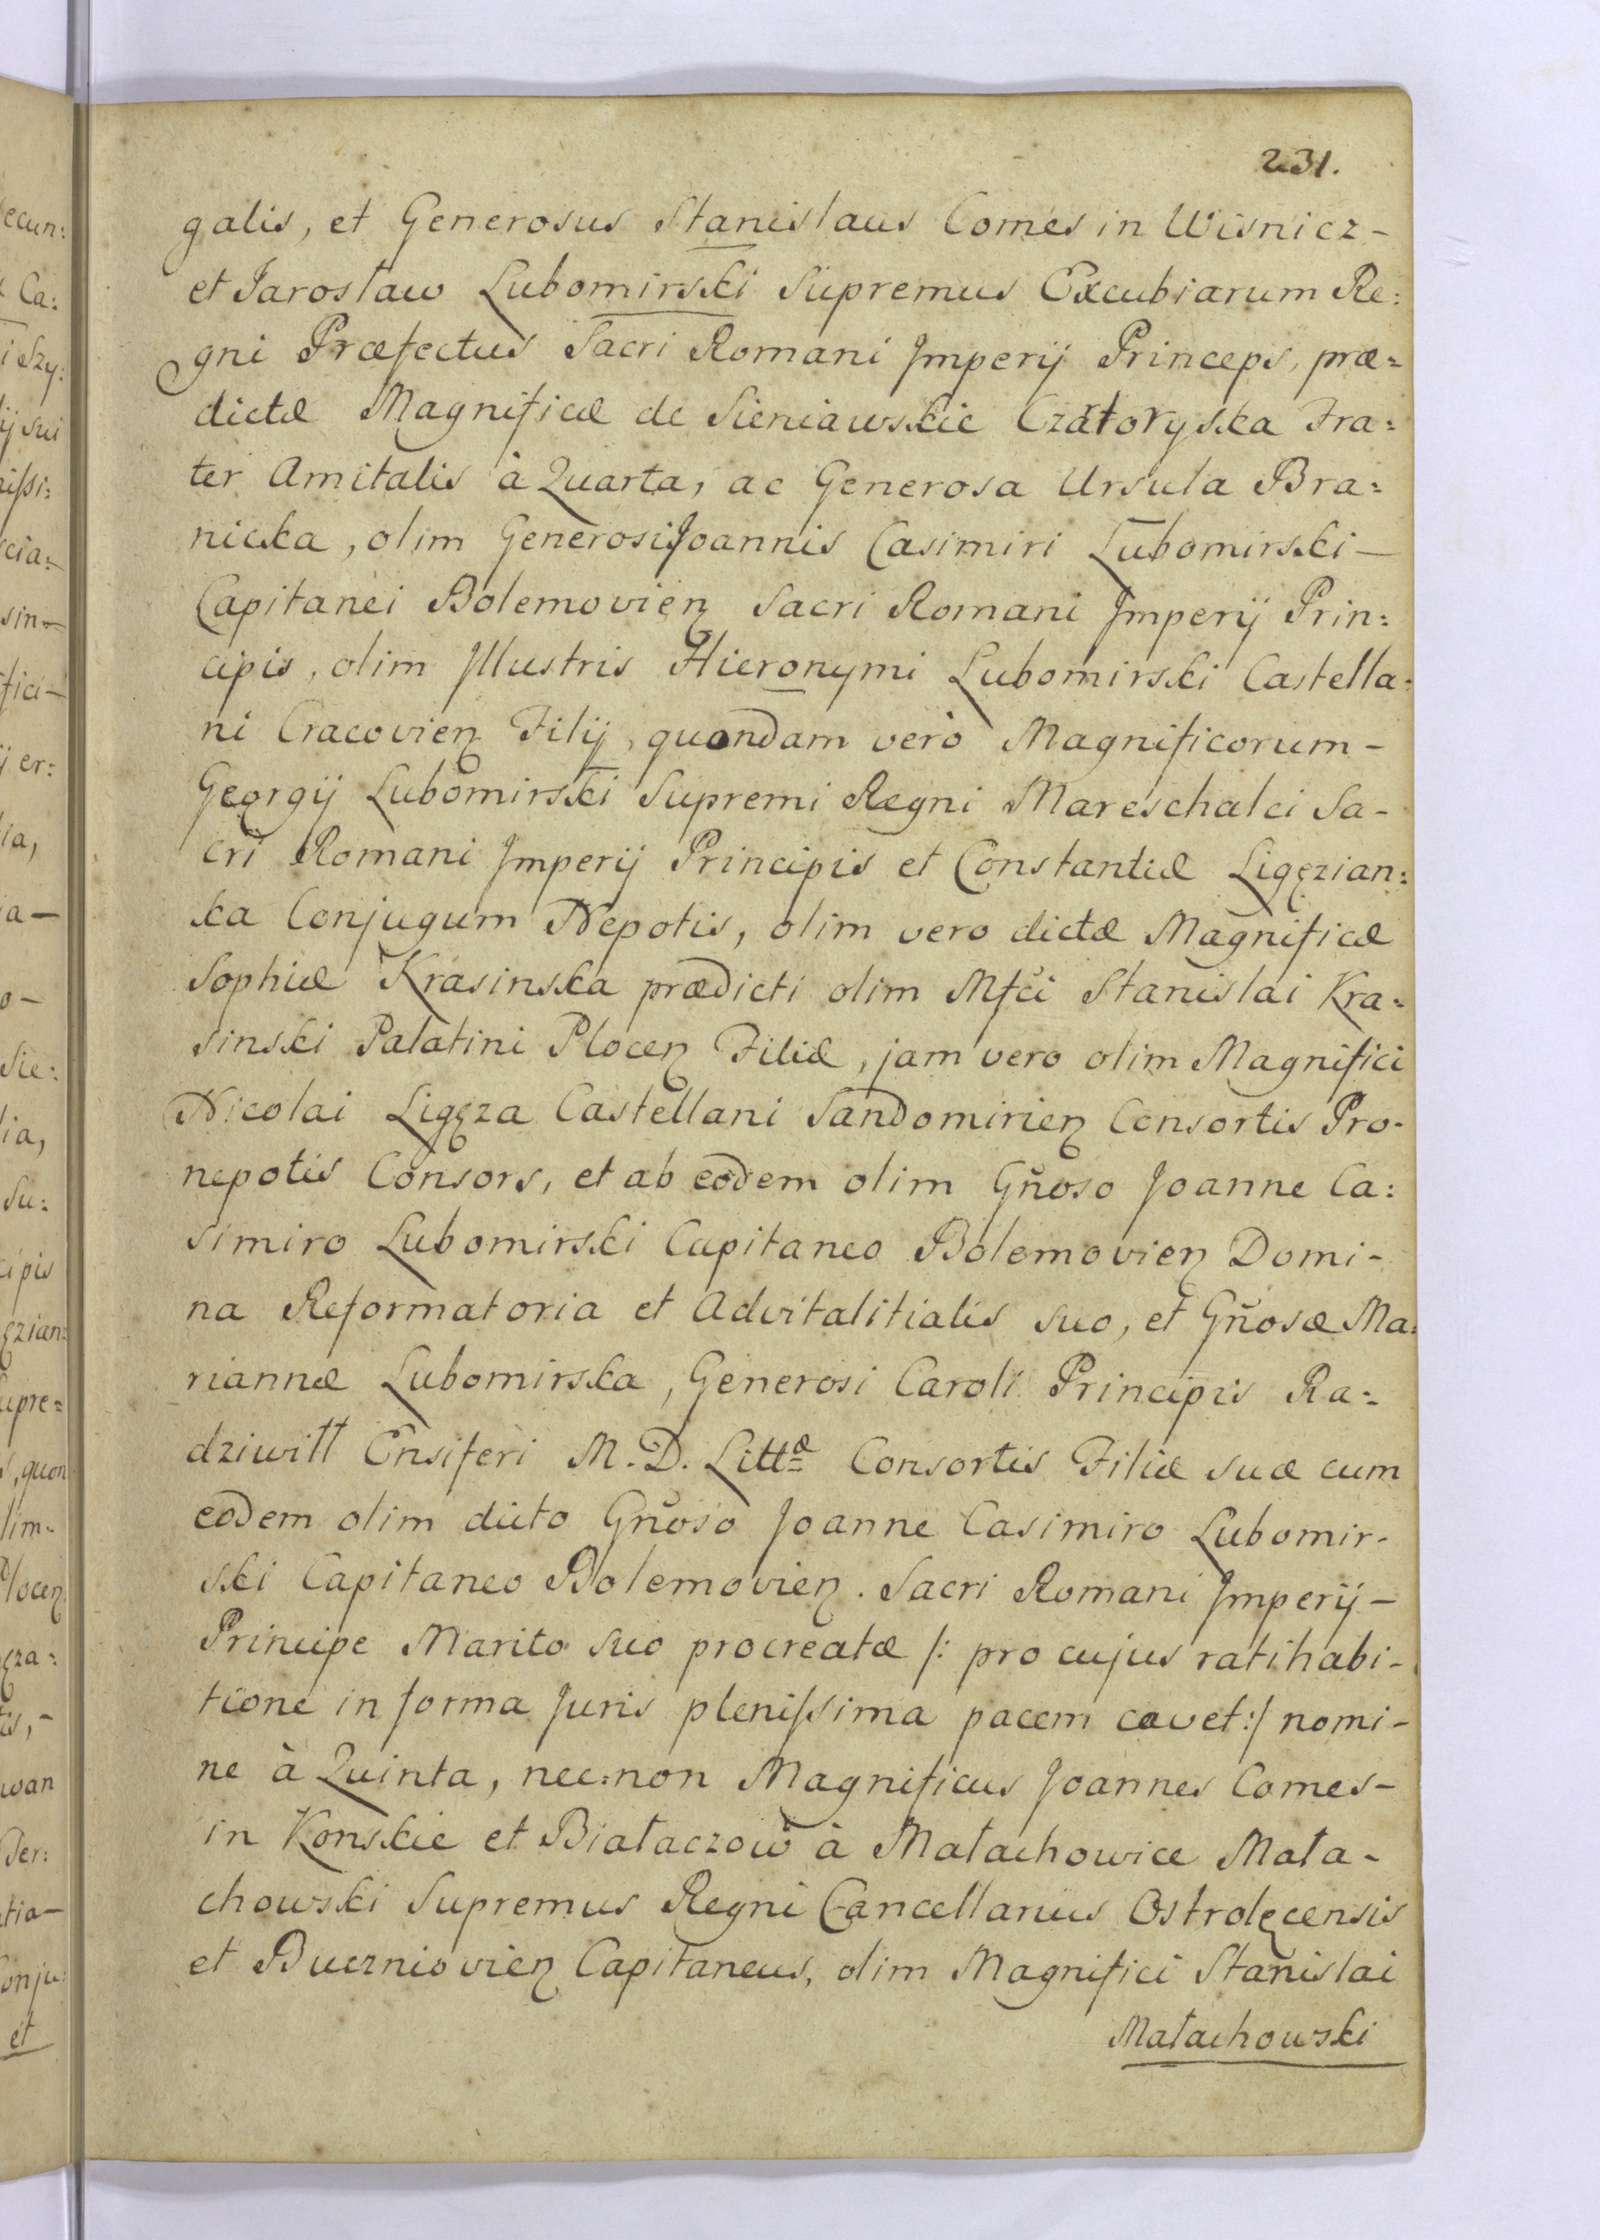 231.
galis, et Generosus Stanislaus Comes in Wisnicz-
et Jarosław Lubomirski Supremus Excubiarum Re:
gni Præfectus Sacri Romani Imperij Princeps, præ=
dictæ Magnificæ de Sieniawskie Czartoryska Fra:
ter Amitalis à Quarta, ac Generosa Ursula Bra=
nicka, olim Generosi Joannis Casimiri Lubomirski-
Capitanei Bolemovien Sacri Romani Imperij Prin:
cipis, olim Illustris Hieronymi Lubomirski Castella:
ni Cracovien Filij, quondam verò Magnificorum-
Georgij Lubomirski Supremi Regni Mareschalci Sa-
cri Romani Imperij Principis et Constantiæ Ligęzian:
ka Conjugum Nepotis, olim vero dictæ Magnificæ
Sophiæ Krasinska prædicti olim Mfci Stanislai Kra=
sinski Palatini Plocen Filiæ, jam vero olim Magnifici
Nicolai Ligęza Castellani Sandomirien Consortis Pro-
nepotis Consors, et ab eodem olim Gñoso Joanne Ca:
simiro Lubomirski Capitaneo Bolemovien Domi-
na Reformatoria et Advitalitialis suo, et Gñosæ Ma:
riannæ Lubomirska, Generosi Caroli Principis Ra=
dziwiłł Ensiferi M. D. Littæ Consortis Filiæ suæ cum
eodem olim dicto Gñoso Joanne Casimiro Lubomir-
ski Capitaneo Bolemovien. Sacri Romani Imperij-
Principe Marito suo procreatæ /: pro cujus ratihabi-
tione in forma Juris plenissima pacem cavet:/ nomi-
ne à Quinta, nec:non Magnificus Joannes Comes-
in Konskie et Białaczow à Małachowice Mała-
chowski Supremus Regni Cancellarius Ostrolęcensis
et Buczniovien Capitaneus, olim Magnifici Stanislai
Małachowski
ecun:
Ca:
i Szy:
ij sui
cia-
sin-
fici-
ij er:
lia,
ia-
o-
Sie:
lia,
Su:
cipis
ęzian:
upre=
s, quon
lim-
Plocen
ęza=
tis,-
wan
Der:
tia-
Conju:
et